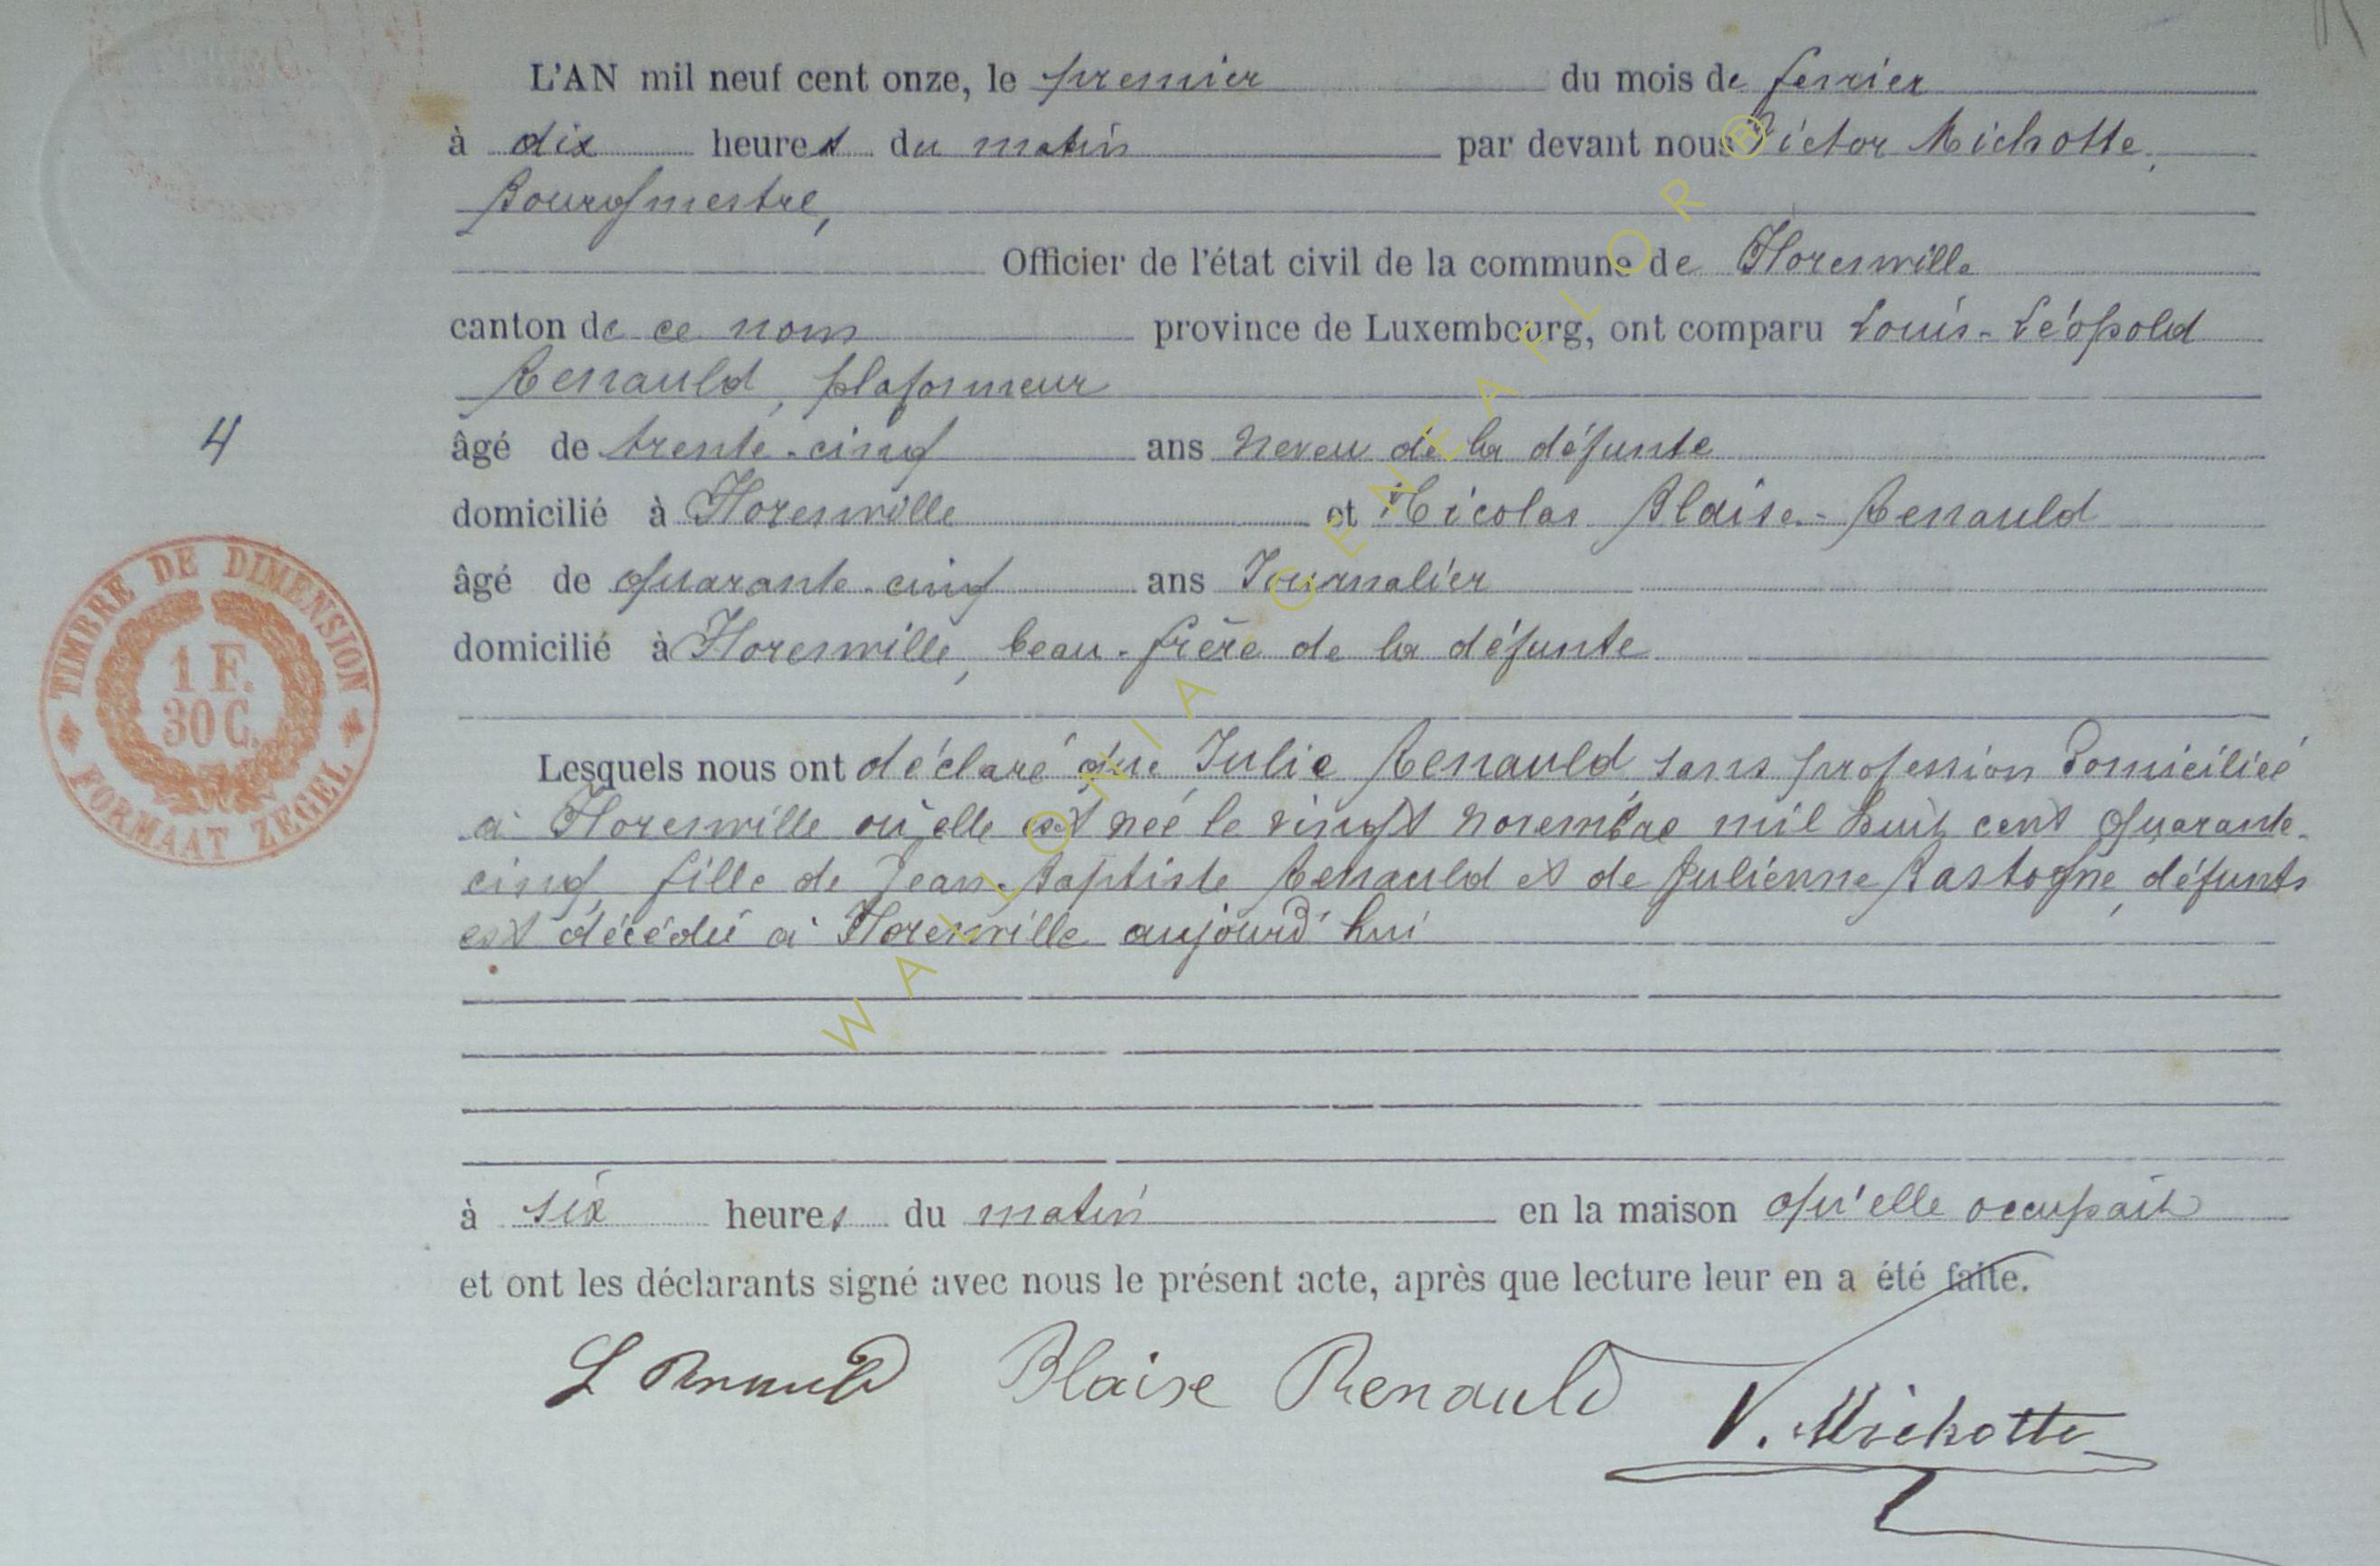 L'AN mil neuf cent onze, le premier du mois de fevrier
à dix heures du matin par devant nous Victor Michotte,
Bourgmestre,
Officier de l'état civil de la commune de Florenville
canton de ce nom province de Luxembourg, ont comparu Louis-Léopold
Renauld, plafonneur
4
âgé de trente-cinq ans neveu de la défunte
domicilié à Florenville et Nicolas Blaise-Renauld
âgé de quarante-cinq ans Journalier
domicilié à Florenville, beau-frère de la défunte
TIMBRE DE DIMENSION
1 F.
30 C.
FORMAAT ZEGEL
Lesquels nous ont déclaré que Julie Renauld, sans profession domiciliée
à Florenville où elle est née le vingt novembre mil huit cent quarante-
cinq, fille de Jean-Baptiste Renauld et de Julienne Bastogne, défunts
est décédée à Florenville aujourd'hui
à six heures du matin en la maison qu'elle occupait
et ont les déclarants signé avec nous le présent acte, après que lecture leur en a été faite.
L Renauld Blaise Renauld V. Michotte
WALLONIA GENEAFLOR ®